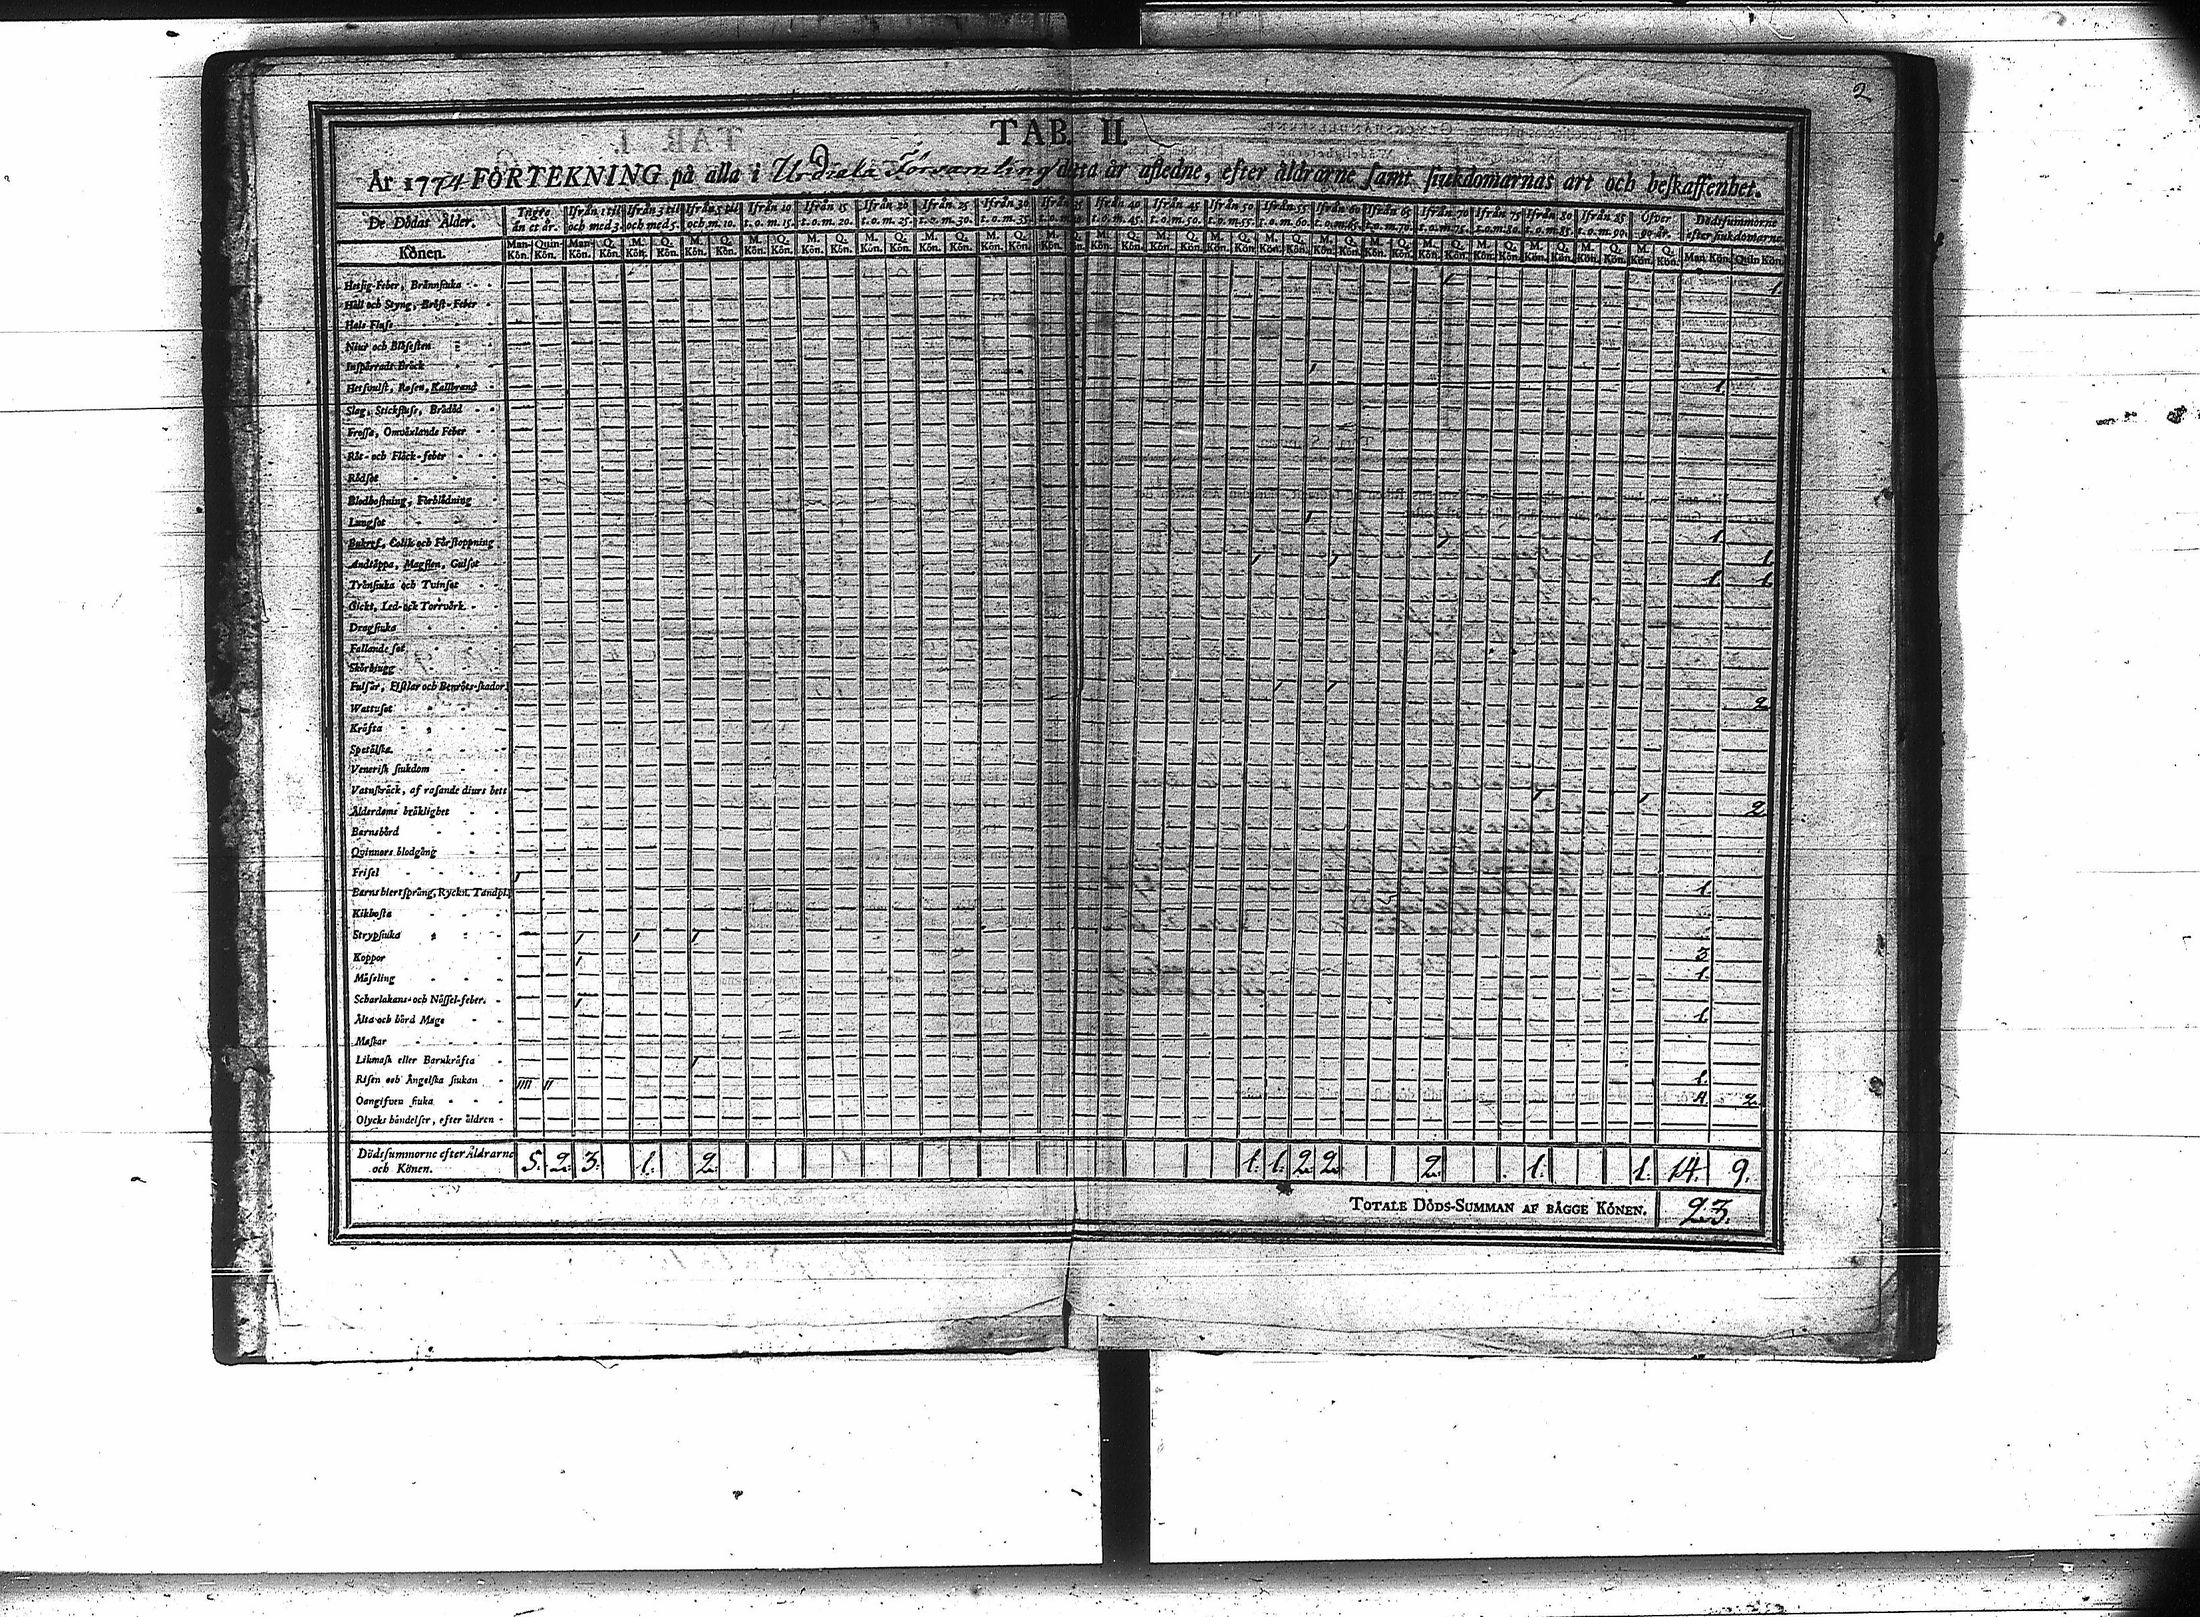 2
TAB. II.
År 1774 FÖRTEKNING på alla i Urdiala Församling detta år afledne, efter åldrarne samt siukdomarnas art och beskaffenhet.
De Dödas Ålder. Yngre än et år. Ifrån 1 til och med 3. Ifrån 3 til och med 5. Ifrån 5 til och m. 10. Ifrån 10 t.o.m. 15. Ifrån 15 t.o.m. 20. Ifrån 20 t.o.m. 25. Ifrån 25 t.o.m. 30. Ifrån 30 t.o.m. 35. Ifrån 35 t.o.m. 40. Ifrån 40 t.o.m. 45. Ifrån 45 t.o.m. 50. Ifrån 50 t.o.m. 55. Ifrån 55 t.o.m. 60. Ifrån 60 t.o.m. 65. Ifrån 65 t.o.m. 70. Ifrån 70 t.o.m. 75. Ifrån 75 t.o.m. 80. Ifrån 80 t.o.m. 85. Ifrån 85 t.o.m. 90. Öfver 90 år. Dödssummorne efter siukdomarne.
Könen. Man-Kön. Quin-Kön. Man-Kön. Q. Kön. M. Kön. Q. Kön. M. Kön. Q. Kön. M. Kön. Q. Kön. M. Kön. Q. Kön. M. Kön. Q. Kön. M. Kön. Q. Kön. M. Kön. Q. Kön. M. Kön. Q. Kön. M. Kön. Q. Kön. M. Kön. Q. Kön. M. Kön. Q. Kön. M. Kön. Q. Kön. M. Kön. Q. Kön. M. Kön. Q. Kön. M. Kön. Q. Kön. M. Kön. Q. Kön. M. Kön. Q. Kön. M. Kön. Q. Kön. M. Kön. Q. Kön. Man Kön. Quin Kön.
Hetsig-Feber, Brännsiuka 1 1
Håll och Styng, Bröst-Feber
Hals Fluss
Niur och Blåsesten
Inspärradt Bråck
Hetsvulst, Rosen, Kallbrand 1 1.
Slag, Stickfluss, Brådöd
Frossa, Omväxlande Feber
Röt- och Fläck-feber
Rödsot
Blodhostning, Förblödning
Lungsot
Bukref, Colik och Förstoppning 1 1.
Andtäppa, Magsien, Gulsot 1 1.
Trånsiuka och Tvinsot 1 1 1. 1.
Gickt, Led- och Torrvärk
Dragsiuka
Fallande sot
Skörbiugg
Fulsår, Fistlar och Benröts-skador
Wattusot 1 1 2
Kräfta
Spetälska
Venerisk siukdom
Vatnskräck, af rasande diurs bett
Ålderdoms bräklighet 1 1 2
Barnsbörd
Qvinnors blodgång
Frisel
Barns hiertsprång, Ryckn. Tandpl. 1 1.
Kikhosta
Strypsiuka
Koppor 1 1 1 3.
Mässling 1 1.
Scharlakans- och Nässel-feber
Älta och hård Mage 1 1.
Maskar
Likmask eller Barnkräfta
Risen och Ängelska siukan 1 1.
Oangifven siuka IIII II 4. 2.
Olycks händelser, efter åldren
Dödssummorne efter Åldrarne och Könen. 5. 2. 3. 1. 2. 1. 1. 2. 2. 2. 1. 1. 14. 9.
TOTALE DÖDS-SUMMAN AF BÅGGE KÖNEN. 23.